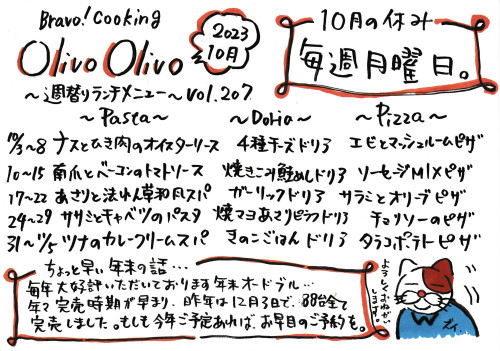 Bravo! Cooking
Olivo Olivo
2023
10月
10月の休み
毎週月曜日。
～週替りランチメニュー～ vol.207
～Pasta～ ～Doria～ ～Pizza～
10/3～8 ナスとひき肉のオイスターソース 4種チーズドリア エビとマッシュルームピザ
10～15 南瓜とベーコンのトマトソース 焼きこみ鮭めしドリア ソーセージMIXピザ
17～22 あさりと法れん草和風スパ ガーリックドリア サラミとオリーブピザ
24～29 ササミとキャベツのパスタ 焼マヨあさりピラフドリア チョリソーのピザ
31～11/5 ツナのカレークリームスパ きのこごはんドリア タラコポテトピザ
ちょっと早い年末の話…
毎年大好評いただいております年末オードブル…
年々完売時期が早まり、昨年は12月3日で、88台全て
完売しました。もしも今年ご予定あれば、お早目のご予約を。
よろしくおねがい
します。
ズイ